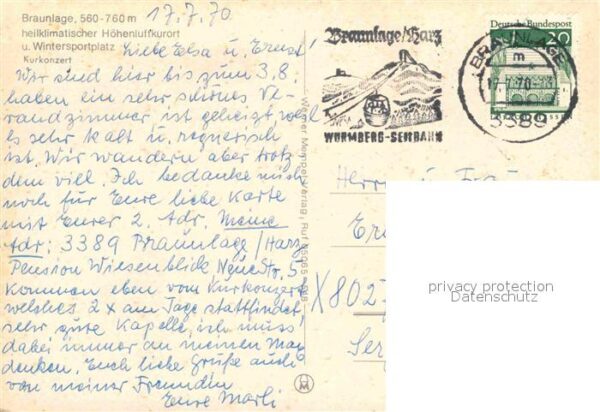 Braunlage, 560-760 m
heilklimatischer Höhenluftkurort
u. Wintersportplatz
Kurkonzert
17.7.70
Liebe Elsa u. Ernst!
Wir sind hier bis zum 3.8.
haben ein sehr schönes Ve-
randzimmer ist geheizt, weil
es sehr kalt u. regnerisch
ist. Wir wandern aber trotz
dem viel. Ich bedanke mich
noch für Eure liebe Karte
mit Eurer 2. Adr. Meine
Adr: 3389 Braunlage/Harz
Pension Wiesenblick Neue Str. 5
kommen eben vom Kurkonzert
welches 2 x am Tage stattfindet,
sehr gute Kapelle, ich muss
dabei immer an meinen Man
denken. Euch liebe Grüße auch
von meiner Freundin
Eure Marli
Braunlage/Harz
WURMBERG-SEILBAHN
BRAUNLAGE
m
3389
Deutsche Bundespost
20
Herrn u. Frau
X 802
privacy protection
Datenschutz